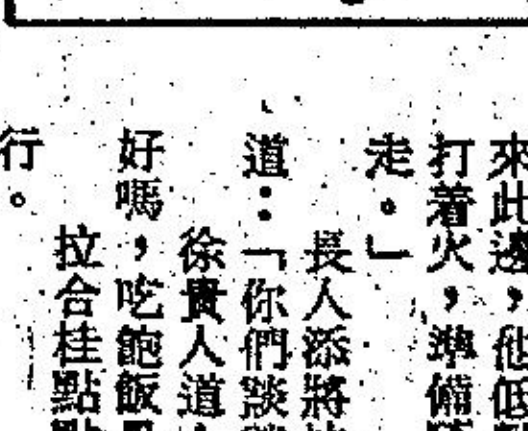 來此邊，他低
打着火，準備
走。」
長人添將
道：「你們談
徐貴人道
好嗎，吃飽飯
拉合桂點點
行。